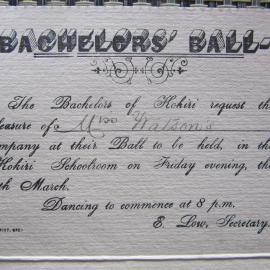 BACHELORS' BALL-
The Bachelors of Hohiri request the
leasure of Miss Watson's
ompany at their Ball to be held, in the
Hohiri Schoolroom on Friday evening, the
th March.
Dancing to commence at 8 p.m.
E. Low, Secretary.